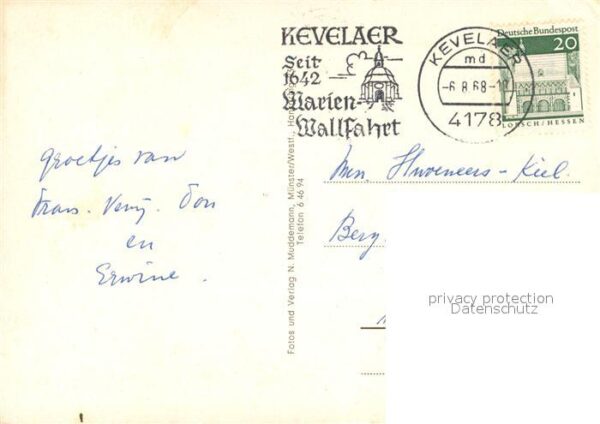 KEVELAER
Seit
1642
Marien-
Wallfahrt
KEVELAER
md
-6.8.68-1
4178
Deutsche Bundespost
20
LORSCH/HESSEN
groetjes van
Frans.
Ton
en
Erwine.
Fotos und Verlag N. Muddemann, Münster/Westf.,
Telefon 6 46 94
- Kiel.
Berg.
privacy protection
Datenschutz